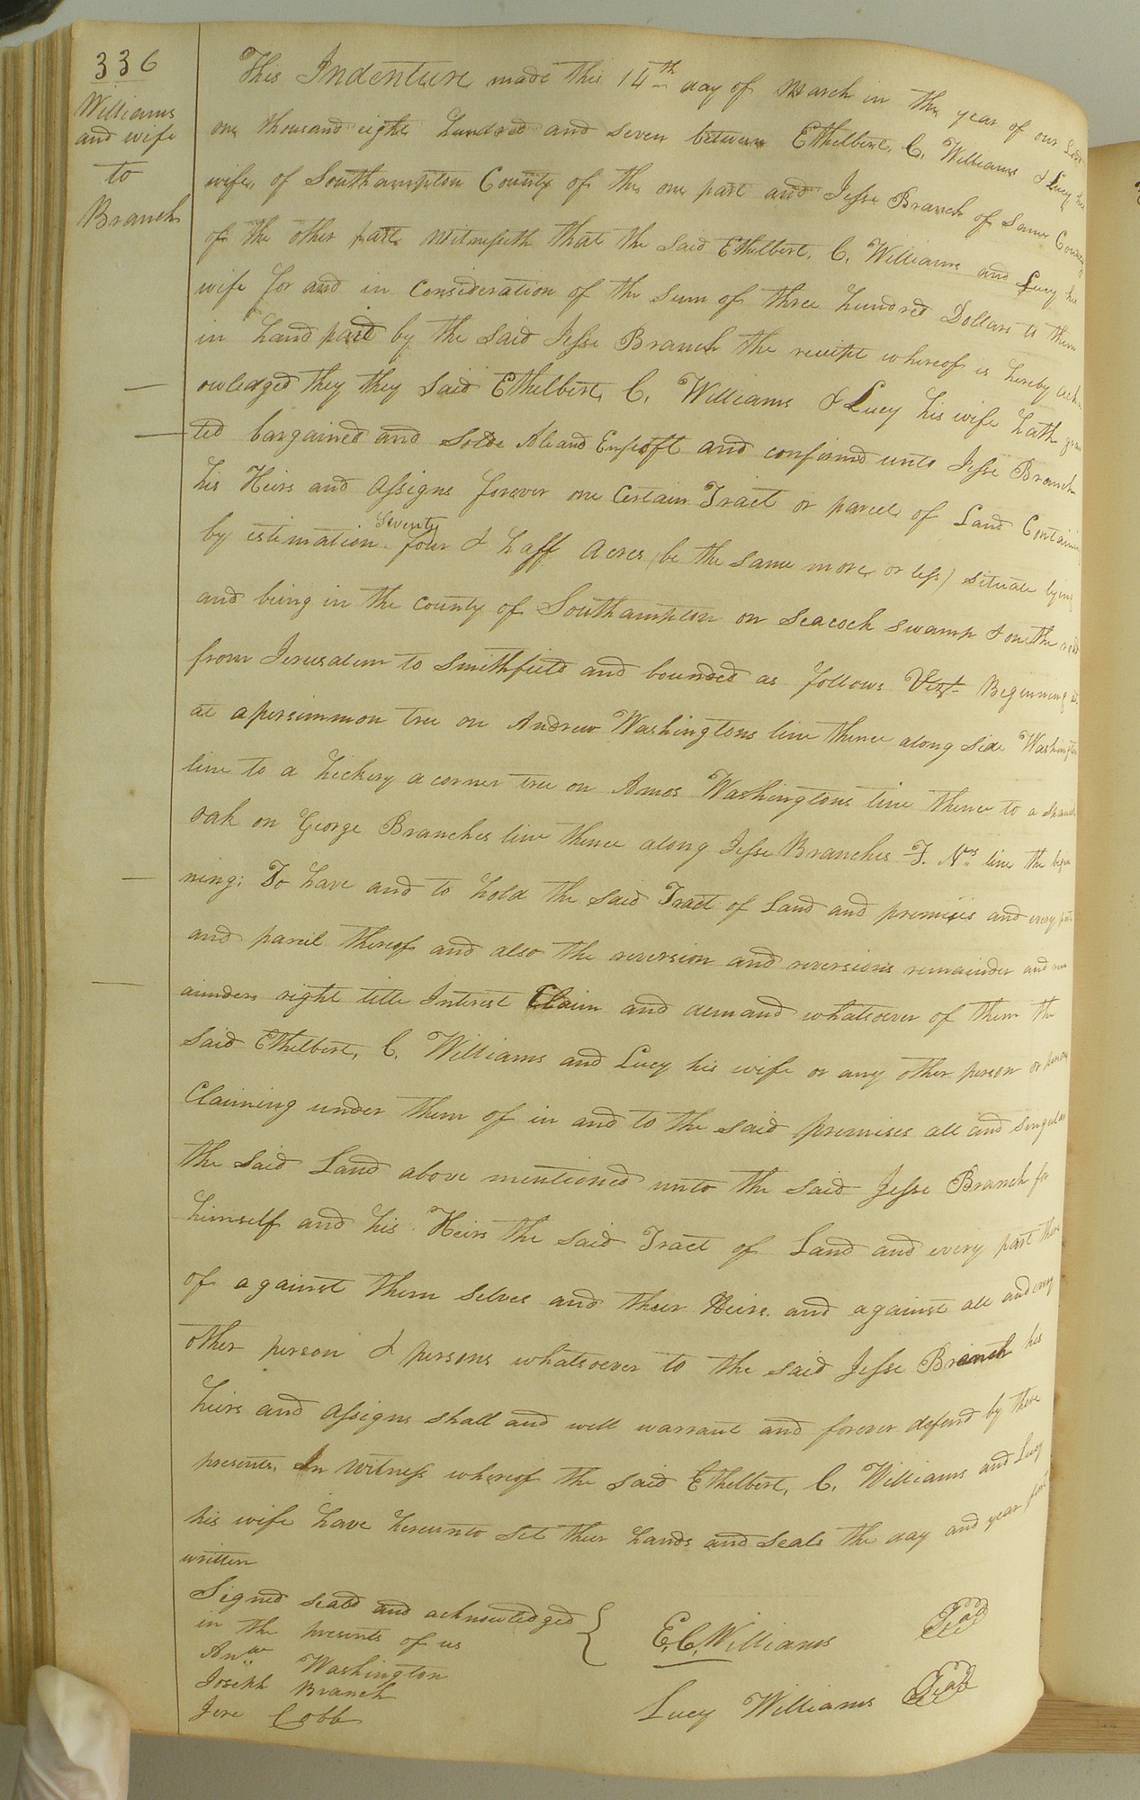 336
Williams
and wife
to
Branch
This Indenture made this 14th day of March in the year of our Lord
one thousand eight hundred and seven between Ethelbert. C. Williams & Lucy his
wife, of Southampton County of the one part and Jesse Branch of Same County
of the other part, Witnesseth that the said Ethelbert. C. Williams and Lucy his
wife for and in Consideration of the Sum of three hundred Dollars to them
in hand paid by the said Jesse Branch the receipt whereof is hereby ackn
owledged they they said Ethelbert, C. Williams & Lucy his wife hath gran
ted bargained and Solde and Enfeoft and confirmed unto Jesse Branch
his Heirs and Assigns forever one Certain Tract or parcel of Land Containing
Seventy
by estimation four & half Acres (be the same more or less) situate lying
and being in the County of Southampton on Seacock swamp & on the road
from Jerusalem to Smithfield and bounded as follows Vizt Beginning
at a persimmon tree on Andrew Washingtons line thence along side Washington
line to a hickory a corner tree on Amos Washingtons line thence to a
oak on George Branches line thence along Jesse Branches line the begin
ning: To have and to hold the said Tract of Land and premises and every part
and parcel thereof and also the reversion and reversions remainder and rem
ainders right title Interest Claim and demand whatsoever of them the
said Ethelbert, C. Williams and Lucy his wife or any other person or persons
Claiming under them of in and to the said premises all and Singular
the said Land above mentioned unto the said Jesse Branch for
himself and his Heirs the said Tract of Land and every part there
of against them selves and their Heirs and against all and every
other person & persons whatsoever to the said Jesse Branch his
heirs and assigns shall and will warrant and forever defend by these
presents, In Witness whereof the said Ethelbert, C. Williams and Lucy
his wife have hereunto Set their hands and Seals the day and year first
written
Signed seald and acknowledged
in the presents of us
Anw Washington
Joseph Branch
Jere Cobb
E. C. Williams Seal
Lucy Williams Seal